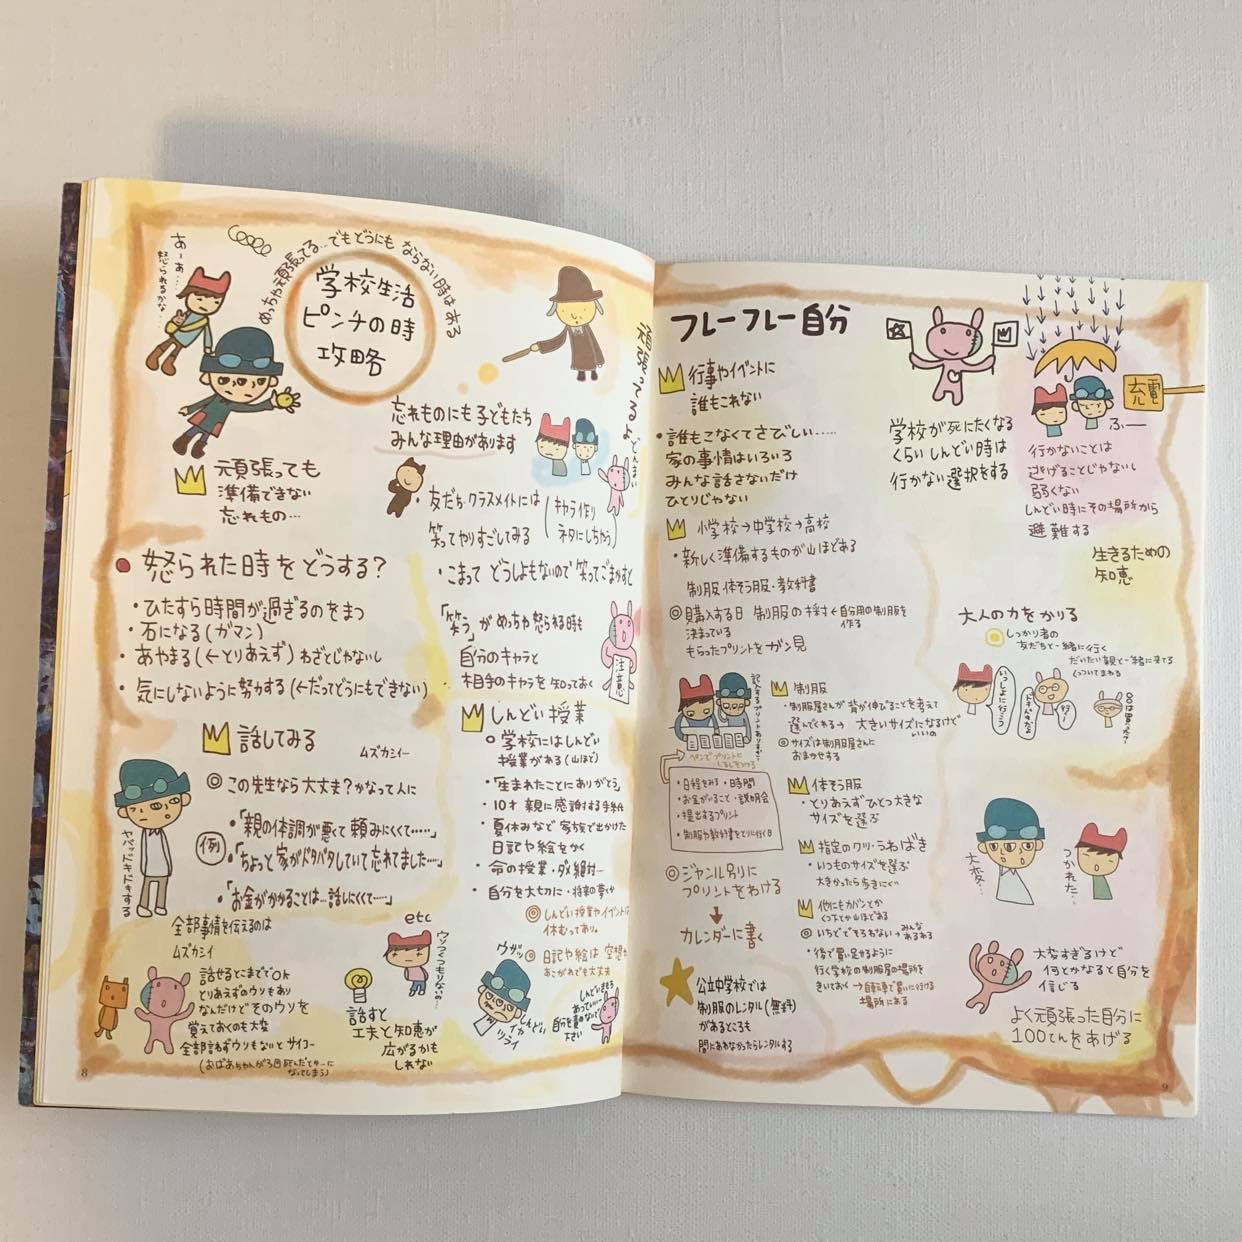 あーあ…
怒られるかな…
めっちゃ頑張ってる…でもどうにもならない時はある
学校生活
ピンチの時
攻略
頑張っても
準備できない
忘れもの…
忘れものにも子どもたち
みんな理由があります
頑張ってるよ どんまい
・友だち・クラスメイトには
笑ってやりすごしてみる
(キャラ作り
ネタにしちゃう)
・こまって どうしようもないので 笑ってごまかすと
「笑う」がめっちゃ怒られる時も
自分のキャラと
相手のキャラを知っておく
注意
怒られた時をどうする?
・ひたすら時間が過ぎるのをまつ
・石になる(ガマン)
・あやまる(←とりあえず)わざとじゃないし
・気にしないように努力する(←だってどうにもできない)
話してみる
ムズカシイー
◎この先生なら大丈夫?かなって人に
例
・「親の体調が悪くて頼みにくくて……」
・「ちょっと家がバタバタしていて忘れてました……」
「お金がかかることは…話しにくくて……」
ヤバッドキドキする
全部事情を伝えるのは
ムズカシイ
話せるとこまででOK
とりあえずのウソもあり
なんだけどそのウソを
覚えておくのも大変
全部言わずウソもないとサイコー
(おばあちゃんが3回死んだとかーに
なってしまう)
etc
ウソつくつもりないの…
話すと
工夫と知恵が
広がるかも
しれない
しんどい授業
○学校にはしんどい
授業がある(山ほど)
・「生まれたことにありがとう」
・10才 親に感謝する手紙
・夏休みなど家族で出かけた
日記や絵をかく
・命の授業・ダメ絶対
・自分を大切に・将来の夢
◎しんどい授業やイベントは
休むってあり。
◎日記や絵は空想
あこがれで大丈夫
ウガッ
しんどい
イカ
ツライ
しんどい時も
あっていい
自分を責めないで
下さい
8
フレーフレー自分
行事やイベントに
誰もこれない
・誰もこなくてさびしい……
家の事情はいろいろ
みんな話さないだけ
ひとりじゃない
小学校→中学校→高校
・新しく準備するものが山ほどある
制服・体そう服・教科書
◎購入する日 制服の採寸←自分用の制服を
作る
決まっている
もらったプリントをガン見
記入するプリントあります
ペンでプリントに
しるしをつける
・日程をみる・時間
・お金がいること・説明会
・提出するプリント
・制服や教科書をとりに行く日
◎ジャンル別に
プリントをわける
カレンダーに書く
公立中学校では
制服のレンタル(無料)
があるところも
間にあわなかったらレンタルする
制服
・制服屋さんが背が伸びることを考えて
選んでくれる→大きいサイズになるけど
いいの
◎サイズは制服屋さんに
おまかせする
体そう服
・とりあえずひとつ大きな
サイズを選ぶ
指定のクツ・うわばき
・いつものサイズを選ぶ
大きかったら歩きにくい
他にもカバンとか
くつ下とか山ほどある
◎いちどでそろわない→みんな
あるある
・後で買い足せるように
行く学校の制服屋の場所を
きいておく→自転車で買いに行ける
場所にある
学校が死にたくなる
くらいしんどい時は
行かない選択をする
充電
ふぃー
行かないことは
逃げることじゃないし
弱くない
しんどい時にその場所から
避難する
生きるための
知恵
大人の力をかりる
しっかり者の
友だちと一緒に行く
だいたい親と一緒に来てる
くっついてまわる
いっしょに行こう
行こー
○○は買った?
大変…
つかれた…
大変すぎるけど
何とかなると自分を
信じる
よく頑張った自分に
100てんをあげる
9